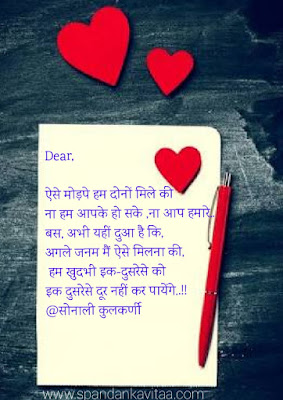 Dear,
ऐसे मोड़पे हम दोनों मिले की
ना हम आपके हो सके ,ना आप हमारे..
बस, अभी यहीं दुआ है कि,
अगले जनम मैं ऐसे मिलना की,
हम खुदभी इक-दुसरेसे को
इक दुसरेसे दूर नहीं कर पायेंगे..!!
@सोनाली कुलकर्णी
www.spandankavitaa.com